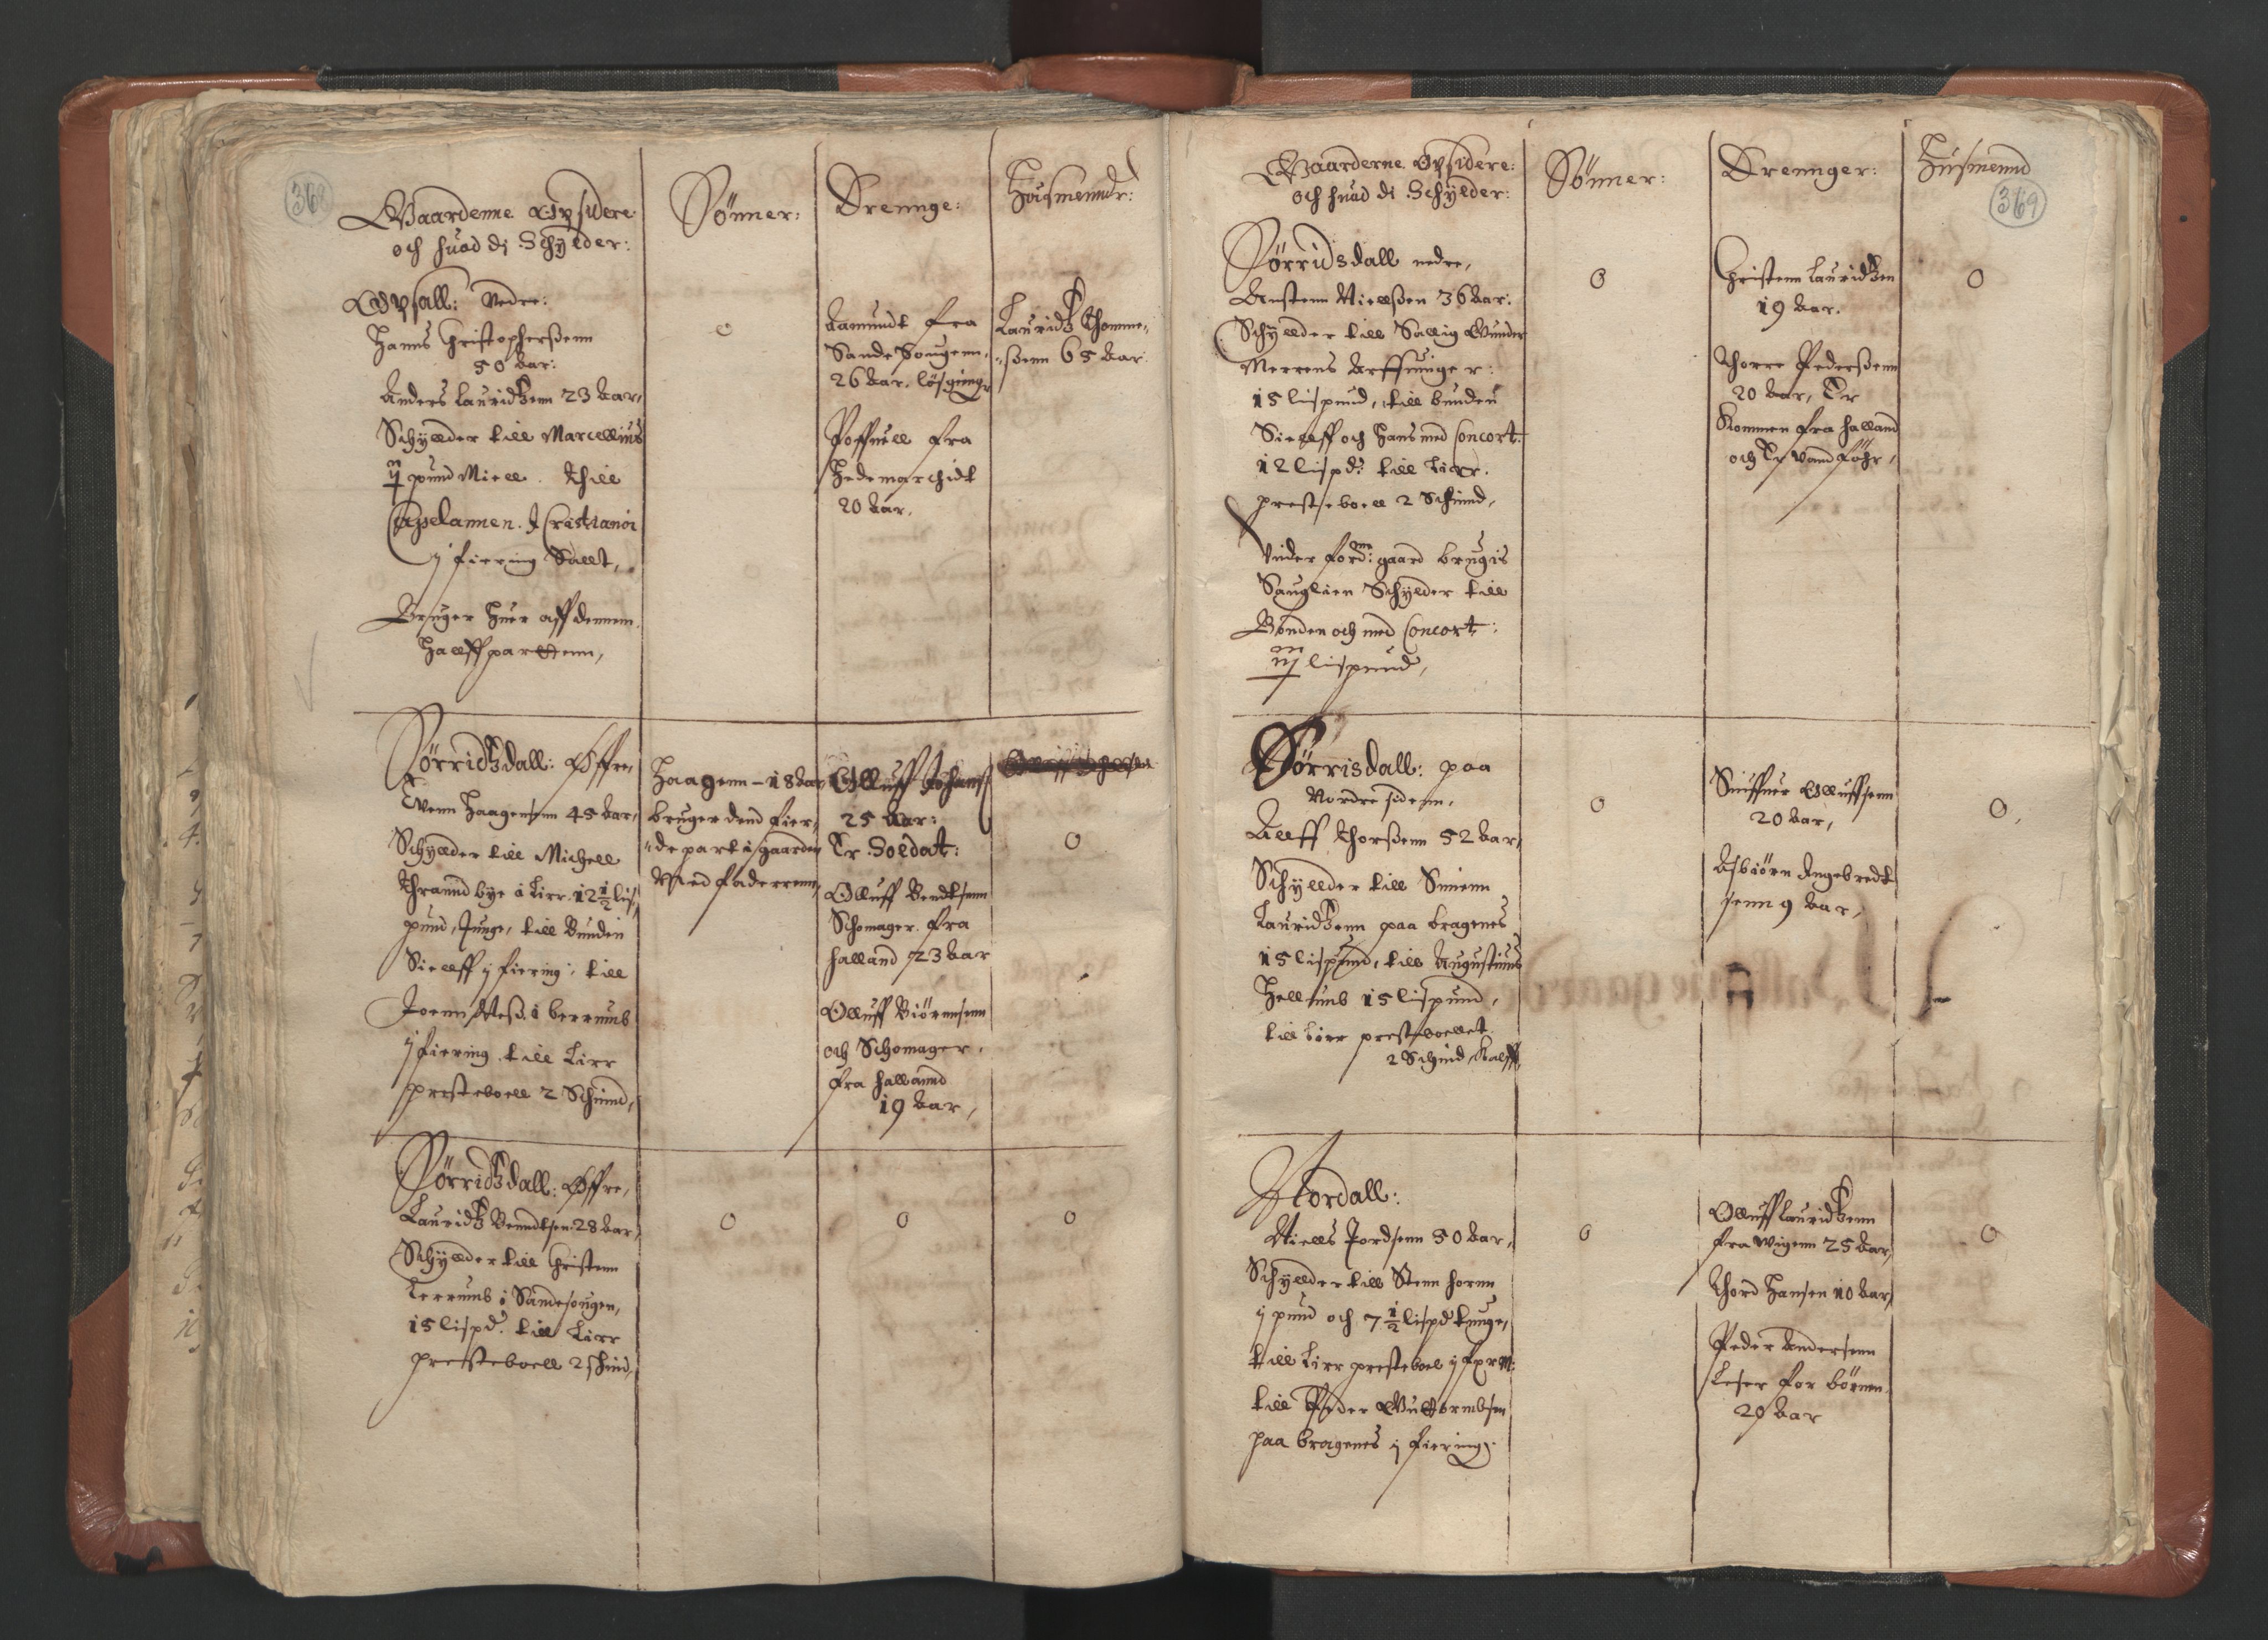 368
Gaardenne Opsidere
och huad dj Schylder:
Sønner:
Drennge:
Huusmenndr:
Opsall: Nedre:
Hanns Christopherßenn
50 Aar:
Anders Lauridtzenn 23 Aar,
Schyllder till Marcellius
ij pund Miell. Thill
Capelannen. J Cristiania
j fiering Sallt,
Bruger Huer aff dennem
Hallffpartenn,
0
Aamundt fra
Sande Sougenn,
26 Aar. løsgiengr
Poffuell fra
Hedemarchidt
20 Aar.
Lauridtz Thomme,,
,,ßenn 65 Aar
Sørridtzdall: Øffre,
Euenn Haagensenn 45 Aar,
Schyllder till Michell
Thranndbye i Lier. 12½ lis,,
pund, Tunge, till Bunden
Siellff j fiering: till
Joenn Neß i berrumb
j fiering till Lier
presteboell 2 Schinnd,
Haagenn - 18 Aar
bruger dend fier,,
,,de part i gaarden
Med faderrenn,
Olluff Johans:
25 Aar:
Er Soldat:
Olluff Bendtsenn
Schomager fra
halland 23 Aar
Olluff Biørnsenn
och Schomager,
fra hallannd
19 Aar,
0
Sørridtzdall: Øffre,
Lauridtz Benndtsen 28 Aar,
Schyllder till Christenn
Lerrumb i Sandesougen,
15 lispd. till Lier
presteboell 2 schind,
0
0
0
369
Gaarderne Opsidere:
och huad di Schylder:
Sønner:
Drennger:
Husmennd
Sørridsdall nedre,
Austenn Nielßen 36 Aar:
Schyllder till Sallig Gunder
Merrens Arffuinger:
15 lispund, till bunden
Siellff och Hans med Concort:
12 lispd: till Lier
prestseboell 2 Schinnd,
Vnder ford:ne gaard brugis
Sauglien Schylder till
Bonden och med Concort:
iij lispund,
0
Christenn Lauridtzen
19 Aar.
Thorre Pederßenn
20 Aar, Er
Kommen fra halland
och Er Vand føhr,
0
Sørrisdall: paa
Nordre sidenn,
Alff Thorßenn 52 Aar,
Schyllder till Simenn
Lauridtzenn paa bragenes
15 lispund, till Augustinus
Hellumb 15 lispund,
till Lier prestebollet
2 Schind, Kalff
0
Siuffuer Olluffsenn
20 Aar,
Asbiørn Angebredt
senn 9 Aar,
0
Nordall:
Niells Jordsenn 50 Aar,
Schyllder till Stenn hornn
j pund och 7½ lispd tunge,
till Lier prestebol j
till Peder Guttormbsen
paa bragenes j fiering.
0
Olluff Lauridtzenn
fra Wigenn 25 Aar,
Thord Hansen 10 Aar,
Peder Andersenn
Leser for børnen
20 Aar
0